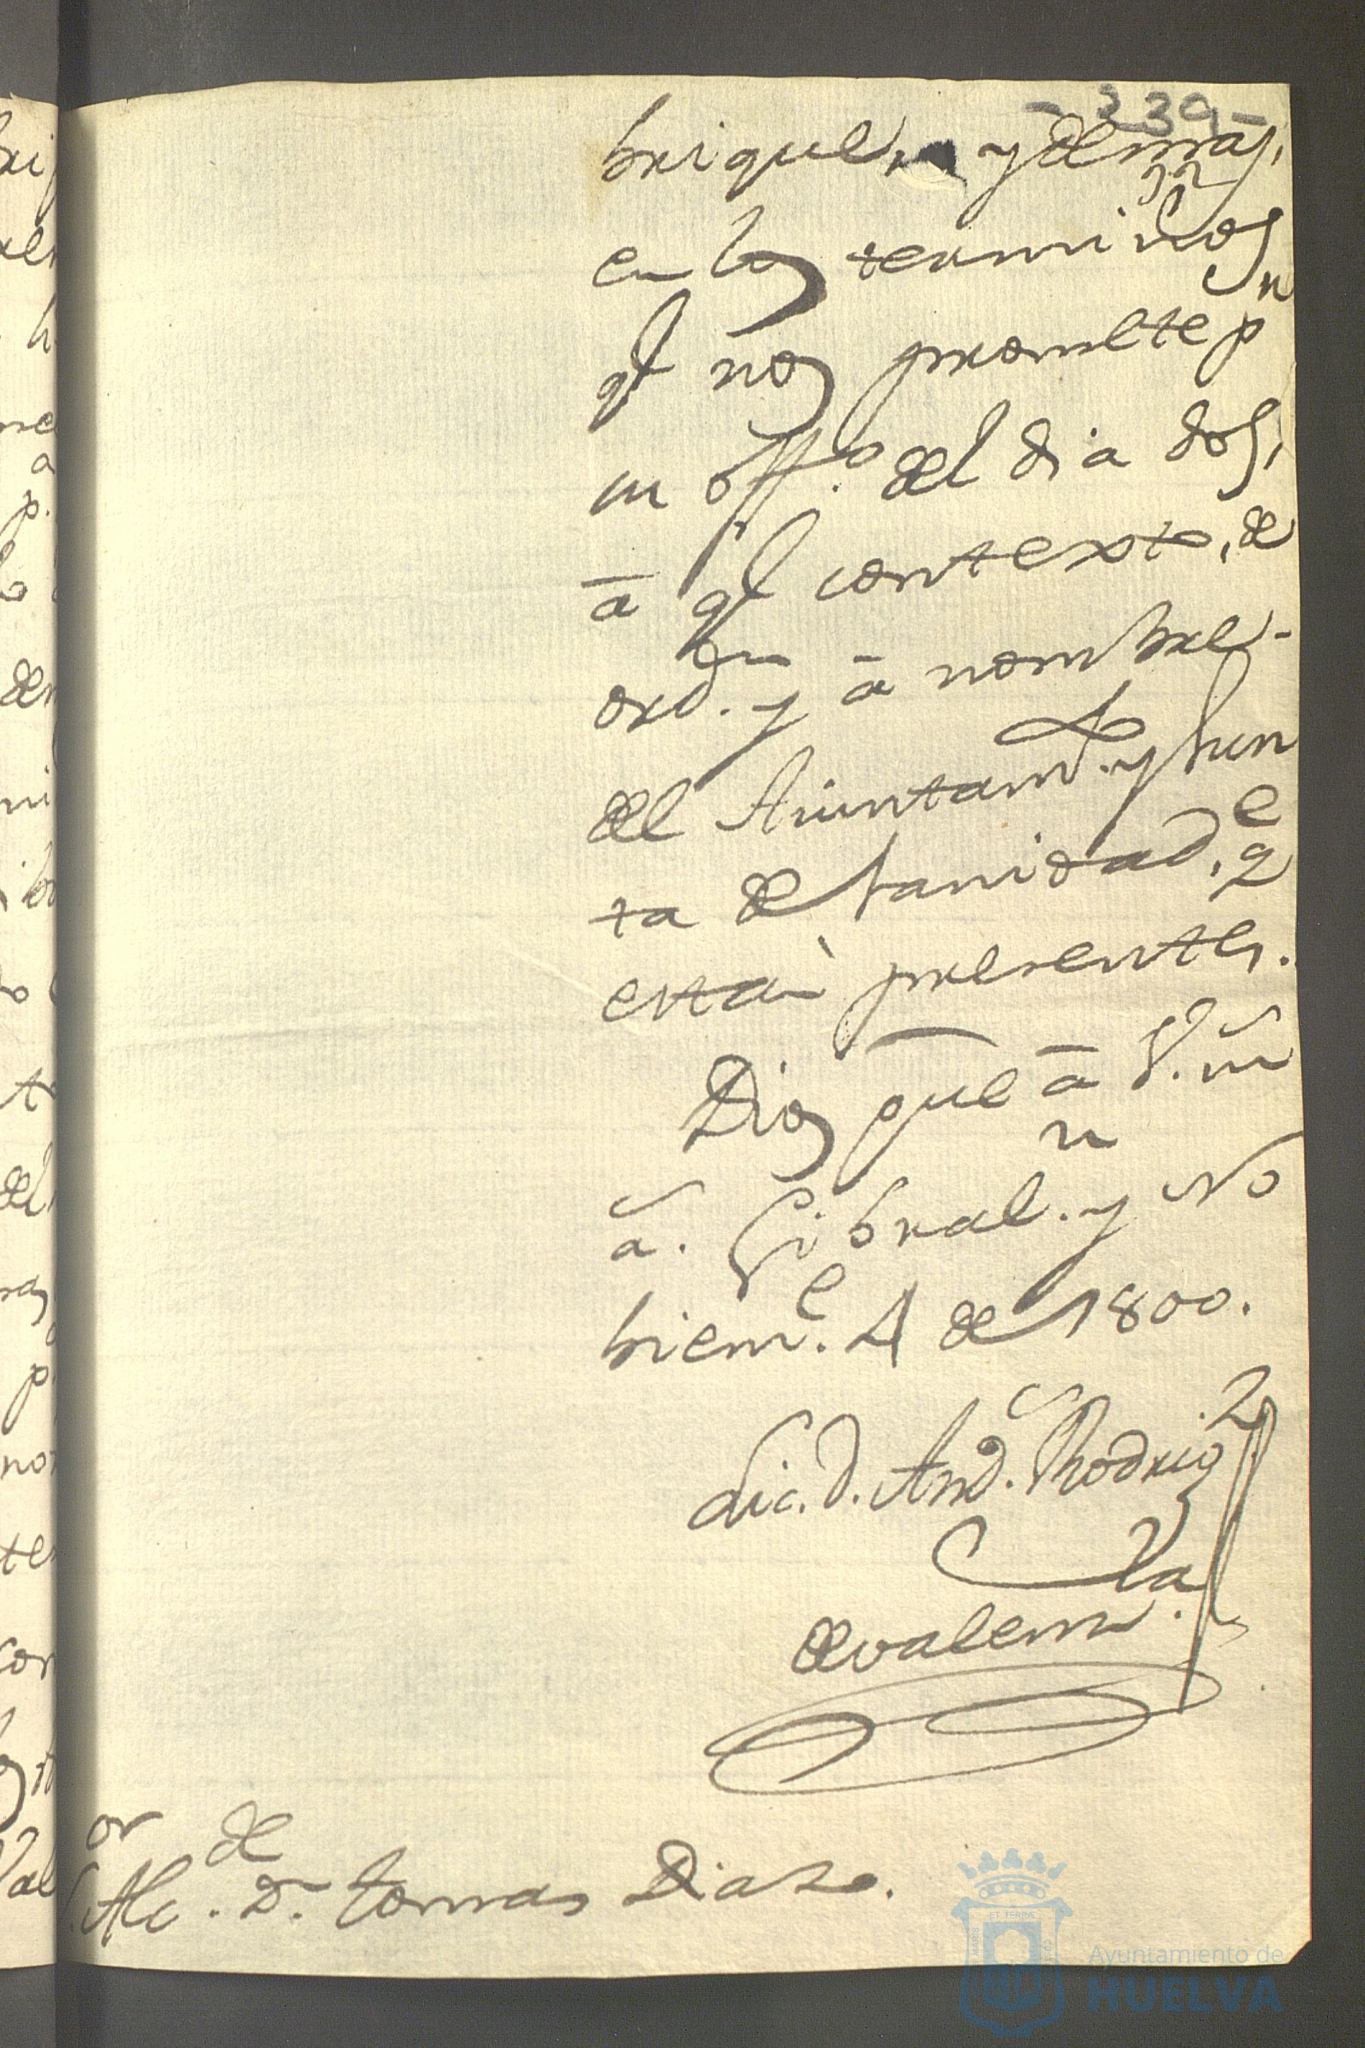 - 239 -
briques, y demas,
en los terminos
qe nos promete pn
su offo. del dia dos,
ā qe contexto, de
ordn. y ā nombre-
del Aiuntamto. y Jun
ta de Sanidad, qe
estàn presentes.
Dios gue ā V. m
a. Gibraln. y No
bieme. 4 de 1800.
Lic. D. And. Rodrigz
de Valenla.
Sor. Alcde. Dn. Tomas Diaz.
Ayuntamiento de
HUELVA